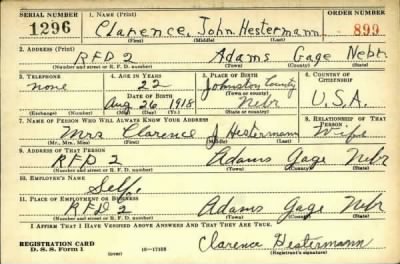 SERIAL NUMBER 1. NAME (Print) ORDER NUMBER
1296 Clarence John Hestermann 899
(First) (Middle) (Last)
2. ADDRESS (Print)
RFD 2 Adams Gage Nebr
(Number and street or R. F. D. number) (Town) (County) (State)
3. TELEPHONE 4. AGE IN YEARS 5. PLACE OF BIRTH 6. COUNTRY OF CITIZENSHIP
none 22 Johnston County
DATE OF BIRTH (Town or county)
Aug 26 1918 Nebr U.S.A.
(Exchange) (Number) (Mo.) (Day) (Yr.) (State or country)
7. NAME OF PERSON WHO WILL ALWAYS KNOW YOUR ADDRESS 8. RELATIONSHIP OF THAT PERSON
Mrs Clarence J Hestermann Wife
(Mr., Mrs., Miss) (First) (Middle) (Last)
9. ADDRESS OF THAT PERSON
RFD 2 Adams Gage Nebr
(Number and street or R. F. D. number) (Town) (County) (State)
10. EMPLOYER'S NAME
Self.
11. PLACE OF EMPLOYMENT OR BUSINESS
RFD 2 Adams Gage Nebr
(Number and street or R. F. D. number) (Town) (County) (State)
I AFFIRM THAT I HAVE VERIFIED ABOVE ANSWERS AND THAT THEY ARE TRUE.
REGISTRATION CARD
D. S. S. Form 1 (over) 16—17105 Clarence Hestermann
(Registrant's signature)